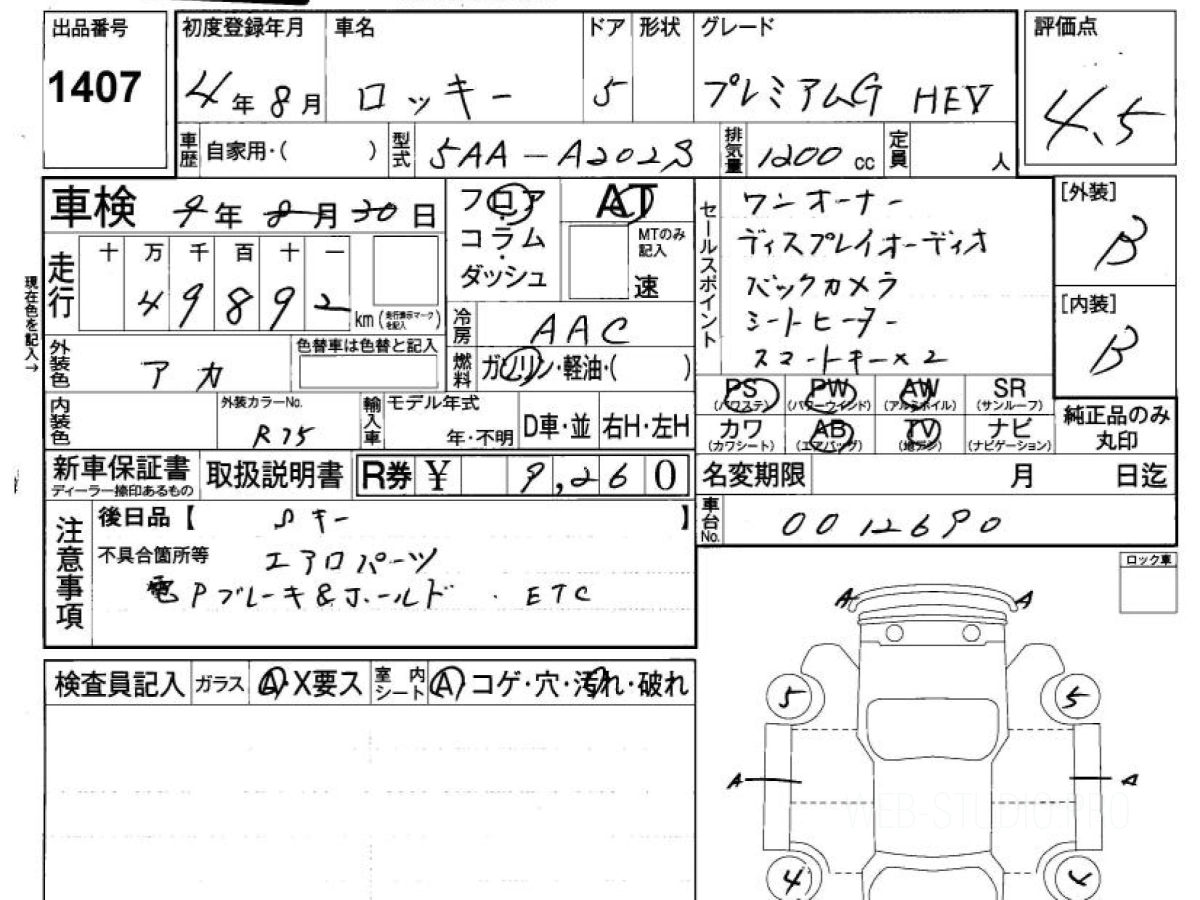 出品番号
1407
初度登録年月
4年8月
車名
ロッキー
ドア
5
形状
グレード
プレミアムG HEV
評価点
4.5
車歴
自家用・( )
型式
5AA-A202S
排気量
1200 cc
定員
人
車検
9年8月30日
走行
十 万 千 百 十 一
4 9 8 9 2
km (走行表示マークを記入)
現在色を記入→
フロア
コラム
ダッシュ
AT
MTのみ記入
速
冷房
AAC
燃料
ガソリン・軽油・( )
セールスポイント
ワンオーナー
ディスプレイオーディオ
バックカメラ
シートヒーター
スマートキー×2
[外装]
B
[内装]
B
外装色
アカ
色替車は色替と記入
内装色
外装カラーNo.
R75
輸入車
モデル年式
年・不明
D車・並
右H・左H
PS
(パワステ)
PW
(パワーウインド)
AW
(アルミホイル)
SR
(サンルーフ)
カワ
(カワシート)
AB
(エアバッグ)
TV
(地デジ)
ナビ
(ナビゲーション)
純正品のみ
丸印
新車保証書
ディーラー捺印あるもの
取扱説明書
R券 ¥ 9,260
名変期限
月 日迄
車台No.
0012690
注意事項
後日品【 Sキー 】
不具合箇所等
エアロパーツ
電Pブレーキ&ホールド . ETC
ロック車
検査員記入
ガラス
A・X要ス
室内シート
A コゲ・穴・汚れ・破れ
A
A
5
5
A
A
4
4
WEB-STUDIO.PRO